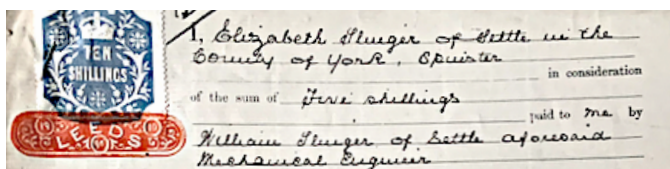 TEN
SHILLINGS
LEEDS
I, Elizabeth Slinger of Settle in the
County of York, Spinster
in consideration
of the sum of Five shillings
paid to me by
William Slinger of Settle aforesaid
Mechanical Engineer